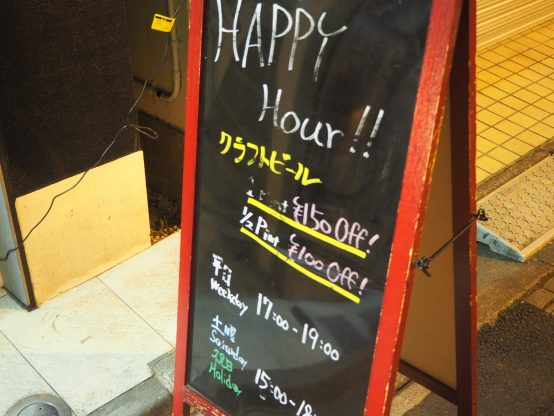 HAPPY
Hour!!
クラフトビール
1 Pint ¥150 Off!
1/2 Pint ¥100 Off!
平日
Weekday 17:00-19:00
土曜
Saturday
祝日
Holiday 15:00-18